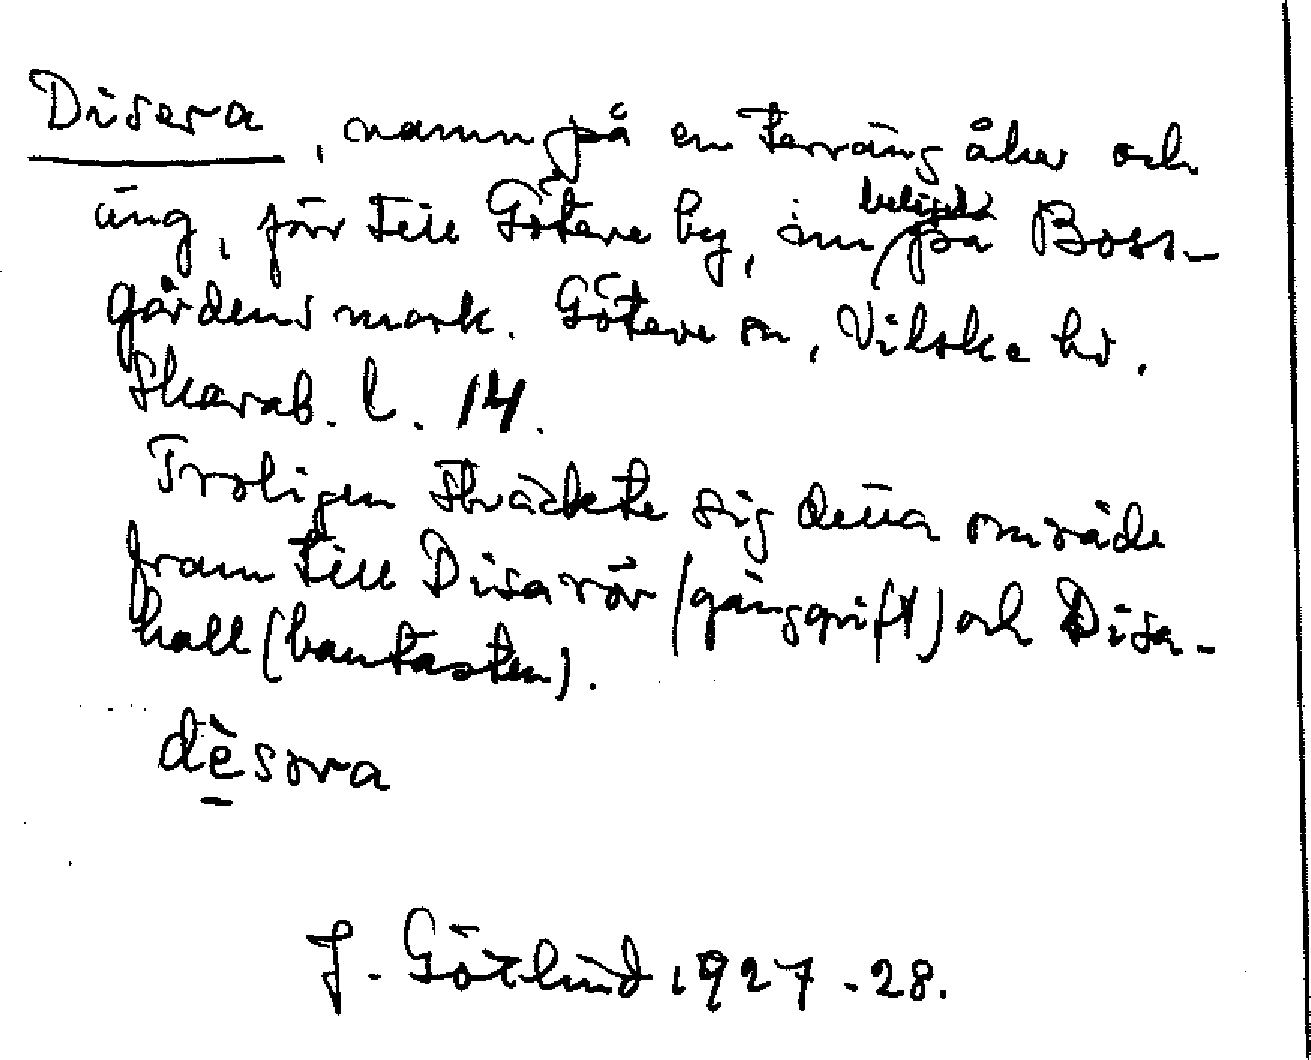 Disera, namn på en terräng åker och
äng, förr till Göteve by, nu belägen på Boss-
gårdens mark. Göteve sn, Vilske hd.
Skarab. l. 14.
Troligen sträckte sig detta område
fram till Disarör (gånggrift) och Disa-
hall (bautasten).
dèsora
J. Götlind 1927-28.